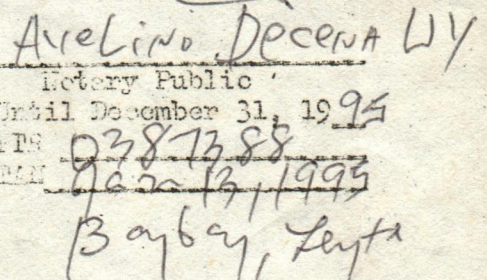 Avelino Decena Uy
Notary Public
Until December 31, 1995
PTR 0387388
Jan 13, 1995
Baybay, Leyte